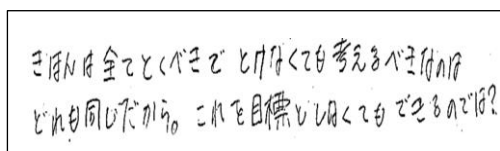 きほんは全てとくべきで とけなくても考えるべきなのは
どれも同じだから。これを目標としなくてもできるのでは？